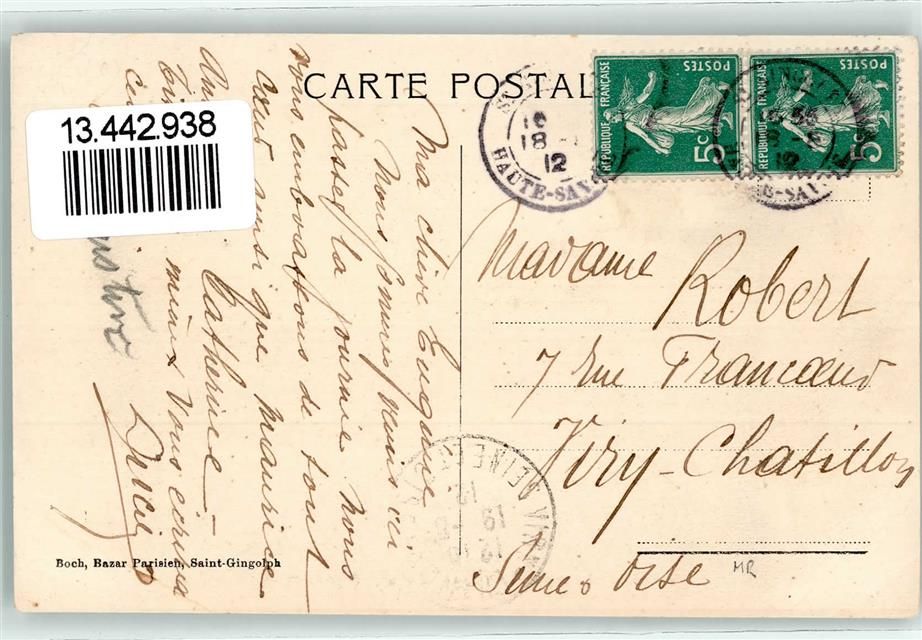 13.442.938
CARTE POSTALE
RÉPUBLIQUE FRANÇAISE
POSTES
5c
RÉPUBLIQUE FRANÇAISE
POSTES
5c
18
12
HAUTE-SAVOIE
Ma chère Eugénie
Nous sommes venus ici
passer la journée nous
vous embrassons de tout
cœur ainsi que Maurice
Catherine
vous écrira
Madame Robert
7 rue Francœur
Viry-Chatillon
Seine & Oise
MR
Boch, Bazar Parisien, Saint-Gingolph